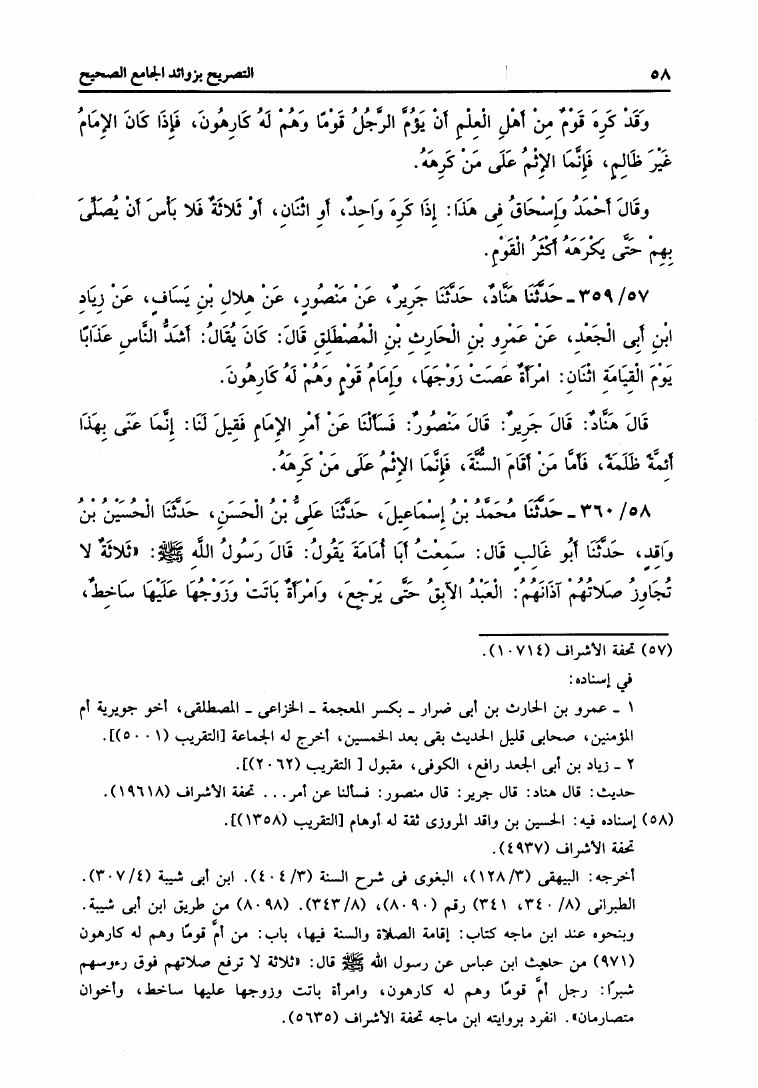 ٥٨ التصريح بزوائد الجامع الصحيح
وَقَدْ كَرِهَ قَوْمٌ مِنْ أَهْلِ الْعِلْمِ أَنْ يَؤُمَّ الرَّجُلُ قَوْمًا وَهُمْ لَهُ كَارِهُونَ، فَإِذَا كَانَ الإِمَامُ
غَيْرَ ظَالِمٍ، فَإِنَّمَا الإِثْمُ عَلَى مَنْ كَرِهَهُ.
وقَالَ أَحْمَدُ وَإِسْحَاقُ فِى هَذَا: إِذَا كَرِهَ وَاحِدٌ، أَوِ اثْنَانِ، أَوْ ثَلاثَةٌ فَلا بَأْسَ أَنْ يُصَلِّىَ
بِهِمْ حَتَّى يَكْرَهَهُ أَكْثَرُ الْقَوْمِ.
٣٥٩/٥٧ ـ حَدَّثَنَا هَنَّادٌ، حَدَّثَنَا جَرِيرٌ، عَنْ مَنْصُورٍ، عَنْ هِلالِ بْنِ يَسَافٍ، عَنْ زِيَادِ
ابْنِ أَبِى الْجَعْدِ، عَنْ عَمْرِو بْنِ الْحَارِثِ بْنِ الْمُصْطَلِقِ قَالَ: كَانَ يُقَالُ: أَشَدُّ النَّاسِ عَذَابًا
يَوْمَ الْقِيَامَةِ اثْنَانِ: امْرَأَةٌ عَصَتْ زَوْجَهَا، وَإِمَامُ قَوْمٍ وَهُمْ لَهُ كَارِهُونَ.
قَالَ هَنَّادٌ: قَالَ جَرِيرٌ: قَالَ مَنْصُورٌ: فَسَأَلْنَا عَنْ أَمْرِ الإِمَامِ فَقِيلَ لَنَا: إِنَّمَا عَنَى بِهَذَا
أَئِمَّةً ظَلَمَةً، فَأَمَّا مَنْ أَقَامَ السُّنَّةَ، فَإِنَّمَا الإِثْمُ عَلَى مَنْ كَرِهَهُ.
٣٦٠/٥٨ ـ حَدَّثَنَا مُحَمَّدُ بْنُ إِسْمَاعِيلَ، حَدَّثَنَا عَلِىُّ بْنُ الْحَسَنِ، حَدَّثَنَا الْحُسَيْنُ بْنُ
وَاقِدٍ، حَدَّثَنَا أَبُو غَالِبٍ قَالَ: سَمِعْتُ أَبَا أُمَامَةَ يَقُولُ: قَالَ رَسُولُ اللَّهِ ﷺ: «ثَلاثَةٌ لا
تُجَاوِزُ صَلاتُهُمْ آذَانَهُمُ: الْعَبْدُ الآبِقُ حَتَّى يَرْجِعَ، وَامْرَأَةٌ بَاتَتْ وَزَوْجُهَا عَلَيْهَا سَاخِطٌ،
(٥٧) تحفة الأشراف (١٠٧١٤).
في إسناده:
١ ـ عمرو بن الحارث بن أبى ضرار ـ بكسر المعجمة ـ الخزاعى ـ المصطلقى، أخو جويرية أم
المؤمنين، صحابى قليل الحديث بقى بعد الخمسين، أخرج له الجماعة [التقريب (٥٠٠١)].
٢ ـ زياد بن أبى الجعد رافع، الكوفى، مقبول [ التقريب (٢٠٦٢)].
حديث: قال هناد: قال جرير: قال منصور: فسألنا عن أمر... تحفة الأشراف (١٩٦١٨).
(٥٨) إسناده فيه: الحسين بن واقد المروزى ثقة له أوهام [التقريب (١٣٥٨)].
تحفة الأشراف (٤٩٣٧).
أخرجه: البيهقى (١٢٨/٣)، البغوى فى شرح السنة (٤٠٤/٣). ابن أبى شيبة (٣٠٧/٤).
الطبرانى (٣٤٠/٨، ٣٤١) رقم (٨٠٩٠)، (٣٤٣/٨). (٨٠٩٨) من طريق ابن أبى شيبة.
وبنحوه عند ابن ماجه كتاب: إقامة الصلاة والسنة فيها، باب: من أمَّ قومًا وهم له كارهون
(٩٧١) من حديث ابن عباس عن رسول الله ﷺ قال: «ثلاثة لا ترفع صلاتهم فوق رءوسهم
شبرًا: رجل أمَّ قومًا وهم له كارهون، وامرأة باتت وزوجها عليها ساخط، وأخوان
متصارمان». انفرد بروايته ابن ماجه تحفة الأشراف (٥٦٣٥).